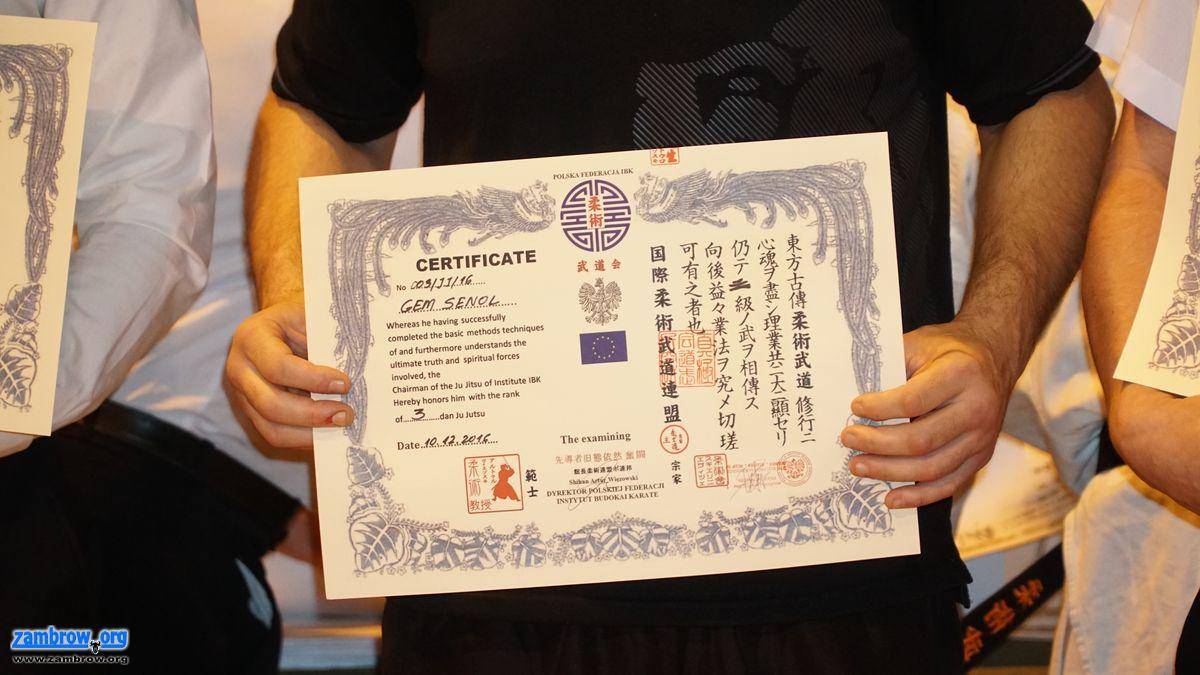 POLSKA FEDERACJA IBK
柔術
武道会
CERTIFICATE
No 003/JJ/16
GEM SENOL
Whereas he having successfully
completed the basic methods techniques
of and furthermore understands the
ultimate truth and spiritual forces
involved, the
Chairman of the Ju Jitsu of Institute IBK
Hereby honors him with the rank
of 3 dan Ju Jutsu
Date 10.12.2016
東方古傳柔術武道修行ニ
心魂ヲ盡シ理業共ニ大ニ顯セリ
仍テ三級ノ武ヲ相傳ス
向後益々業法ヲ究メ切瑳
可有之者也
国際柔術武道連盟
宗家
The examining
先導者旧態依然奮闘
Shihan Artur Więzowski
DYREKTOR POLSKIEJ FEDERACJI
INSTYTUT BUDOKAI KARATE
範士
柔術
教授
zambrow.org
www.zambrow.org